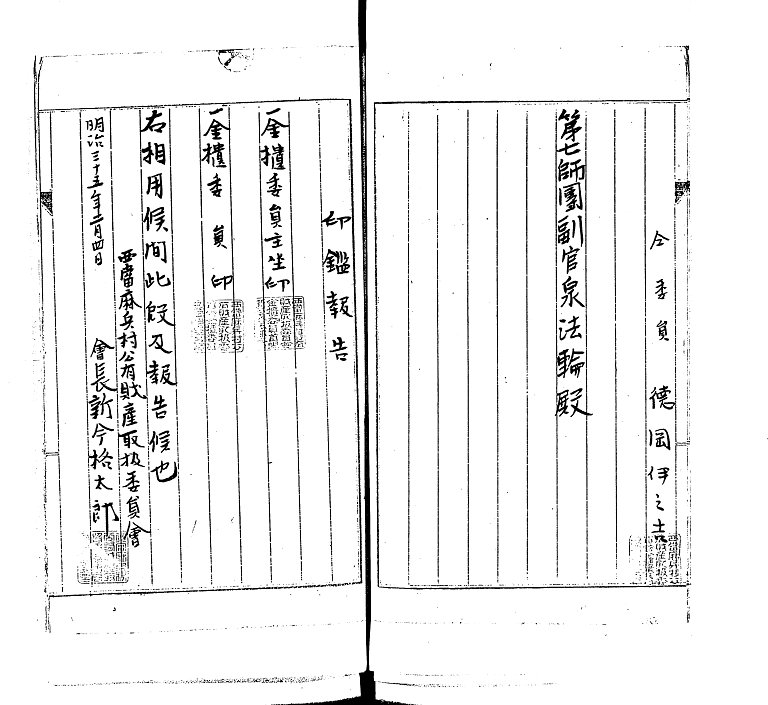 仝委員 德岡伊之吉
第七師團副官泉法輪殿
印鑑報告
一金櫃委員主坐印
一金櫃委員印
右相用候間此段及報告候也
明治三十五年二月四日
西當麻兵村公有財產取扱委員會
會長新今格太郎